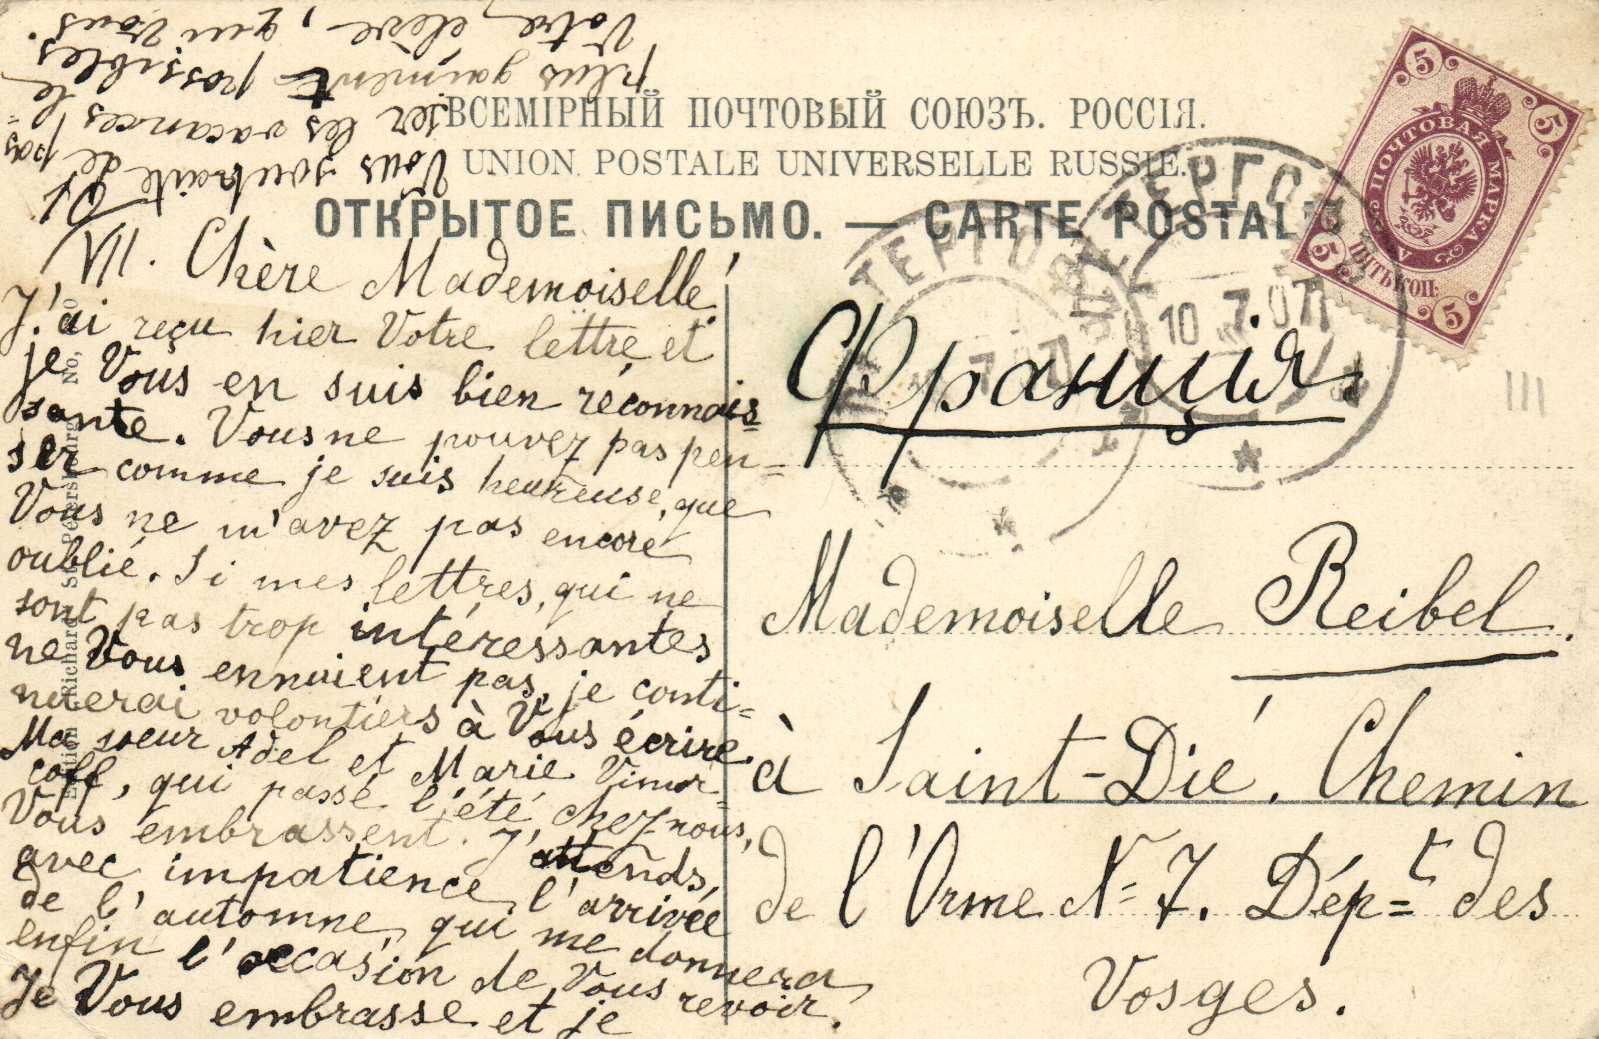 ВСЕМІРНЫЙ ПОЧТОВЫЙ СОЮЗЪ. РОССІЯ.
UNION POSTALE UNIVERSELLE RUSSIE.
ОТКРЫТОЕ ПИСЬМО. — CARTE POSTALE
VII. Chère Mademoiselle!
J'ai reçu hier Votre lettre et
je Vous en suis bien réconnais=
sante. Vous ne pouvez pas pen=
ser comme je suis heureuse, que
Vous ne m'avez pas encore
oublié. Si mes lettres, qui ne
sont pas trop intéressantes
ne Vous ennuient pas, je conti=
nuerai volontiers à Vous écrire.
Ma soeur Adel et Marie Vinor=
coff, qui passe l'été chez nous,
Vous embrassent. J'attends,
avec impatience l'arrivée
de l'automne, qui me donnera
enfin l'occasion de Vous revoir.
Je Vous embrasse et je
Vous souhaite de pas=
ser les vacances le
plus gaiment possibles.
Votre élève, qui Vous
Edition Richard St. Petersbourg No,
5 5 5 5
ПОЧТОВАЯ МАРКА
ПЯТЬ КОП.
ТЕРГОФ
10 7 07
ТЕРГОФ
7 07
Франція.
Mademoiselle Reibel.
à Saint-Dié. Chemin
de l'Orme N= 7. Dép=t des
Vosges.